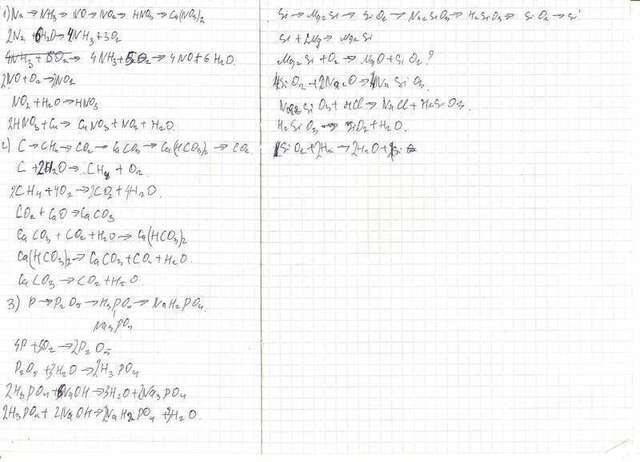 1) N₂ → NH₃ → NO → NO₂ → HNO₃ → Cu(NO₃)₂
2N₂ + 6H₂O → 4NH₃ + 3O₂
4NH₃ + 5O₂ → 4NH₃ + 5O₂ → 4NO + 6H₂O.
2NO + O₂ → 2NO₂
NO₂ + H₂O → HNO₃
2HNO₃ + Cu → CuNO₃ + NO₂ + H₂O.
2) C → CH₄ → CO₂ → CaCO₃ → Ca(HCO₃)₂ → CO₂
C + 2H₂O → CH₄ + O₂
2CH₄ + 4O₂ → 2CO₂ + 4H₂O.
CO₂ + CaO → CaCO₃
CaCO₃ + CO₂ + H₂O → Ca(HCO₃)₂
Ca(HCO₃)₂ → CaCO₃ + CO₂ + H₂O
CaCO₃ → CO₂ + H₂O.
3) P → P₂O₅ → H₃PO₄ → NaH₂PO₄
Na₃PO₄
4P + 5O₂ → 2P₂O₅
P₂O₅ + 3H₂O → 2H₃PO₄
2H₃PO₄ + 6NaOH → 3H₂O + 2Na₃PO₄
2H₃PO₄ + 2NaOH → 2NaH₂PO₄ + 2H₂O.
Si → Mg₂Si → SiO₂ → Na₂SiO₃ → H₂SiO₃ → SiO₂ → Si
Si + 2Mg → Mg₂Si
Mg₂Si + O₂ → MgO + SiO₂?
SiO₂ + 2Na₂O → Na SiO₃
Na₂SiO₃ + HCl → NaCl + H₂SiO₃
H₂SiO₃ → SiO₂ + H₂O.
SiO₂ + 2H₂ → 2H₂O + Si